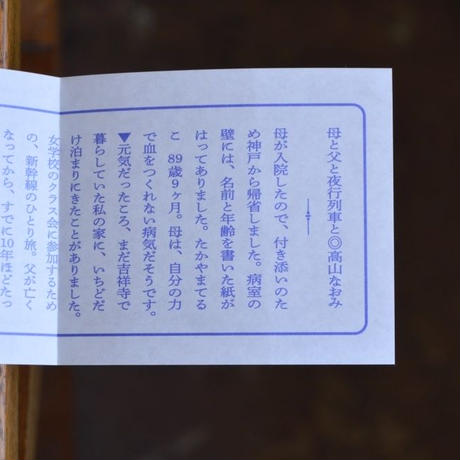 母と父と夜行列車と◎高山なおみ
母が入院したので、付き添いのた
め神戸から帰省しました。病室の
壁には、名前と年齢を書いた紙が
はってありました。たかやまてる
こ 89歳9ヶ月。母は、自分の力
で血をつくれない病気だそうです。
▼元気だったころ、まだ吉祥寺で
暮らしていた私の家に、いちどだ
け泊まりにきたことがありました。
女学校のクラス会に参加するため
の、新幹線のひとり旅。父が亡く
なってから、すでに10年ほどたっ